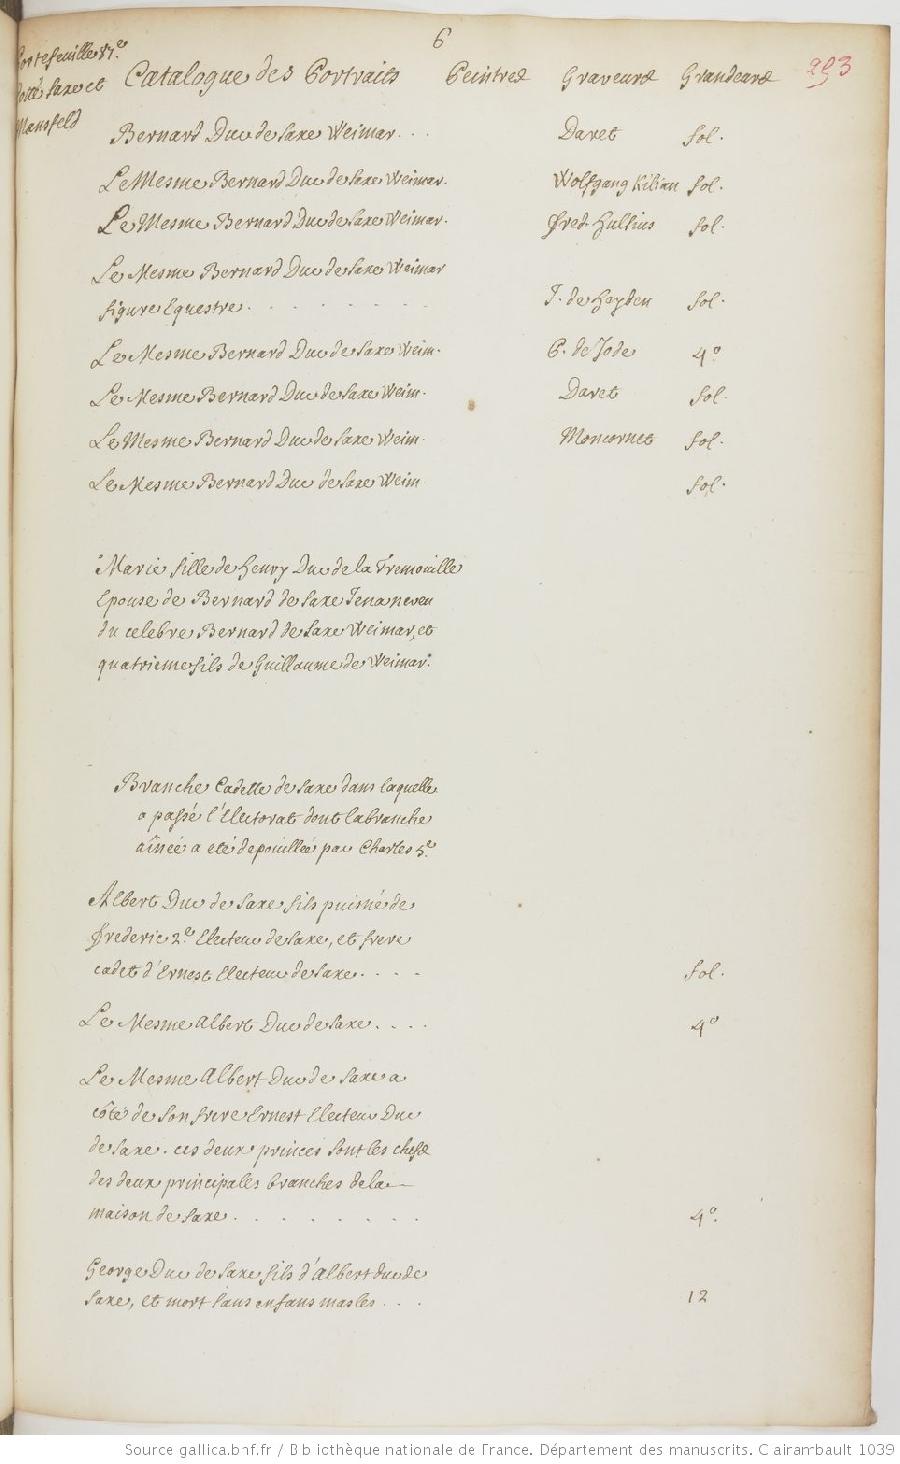 6
Portefeuille 87.e
costé Saxe et
Mansfeld
Catalogue des Portraits Peintres Graveurs Grandeurs 293
Bernard Duc de Saxe Weimar... Daret fol.
Le Mesme Bernard Duc de Saxe Weimar. Wolfgang Kilian fol.
Le Mesme Bernard Duc de Saxe Weimar. fred. Hulsius fol.
Le Mesme Bernard Duc de Saxe Weimar
figure Equestre. . . . . . . . J. de Heyden fol.
Le Mesme Bernard Duc de Saxe Weim. P. de Jode 4.o
Le Mesme Bernard Duc de Saxe Weim. Daret fol.
Le Mesme Bernard Duc de Saxe Weim. Moncornet fol.
Le Mesme Bernard Duc de Saxe Weim fol.
Marie fille de Henry Duc de la Tremouille
Epouse de Bernard de Saxe Jena neveu
du celebre Bernard de Saxe Weimar, et
quatrieme fils de Guillaume de Weimar.
Branche Cadette de Saxe dans laquelle
a passé l'Electorat dont la branche
aînée a eté depouillée par Charles 5.e
Albert Duc de Saxe fils puisné de
frederic 2.e Electeur de Saxe, et frere
cadet d'Ernest Electeur de Saxe. . . . fol.
Le Mesme Albert Duc de Saxe. . . . 4o
Le Mesme Albert Duc de Saxe a
côté de son frere Ernest Electeur Duc
de Saxe. ces deux princes sont les chefs
des deux principales branches de la
maison de Saxe. . . . . . . 4o.
George Duc de Saxe fils d'Albert duc de
Saxe, et mort sans enfans masles . . . 12
Source gallica.bnf.fr / Bibliothèque nationale de France. Département des manuscrits. Clairambault 1039